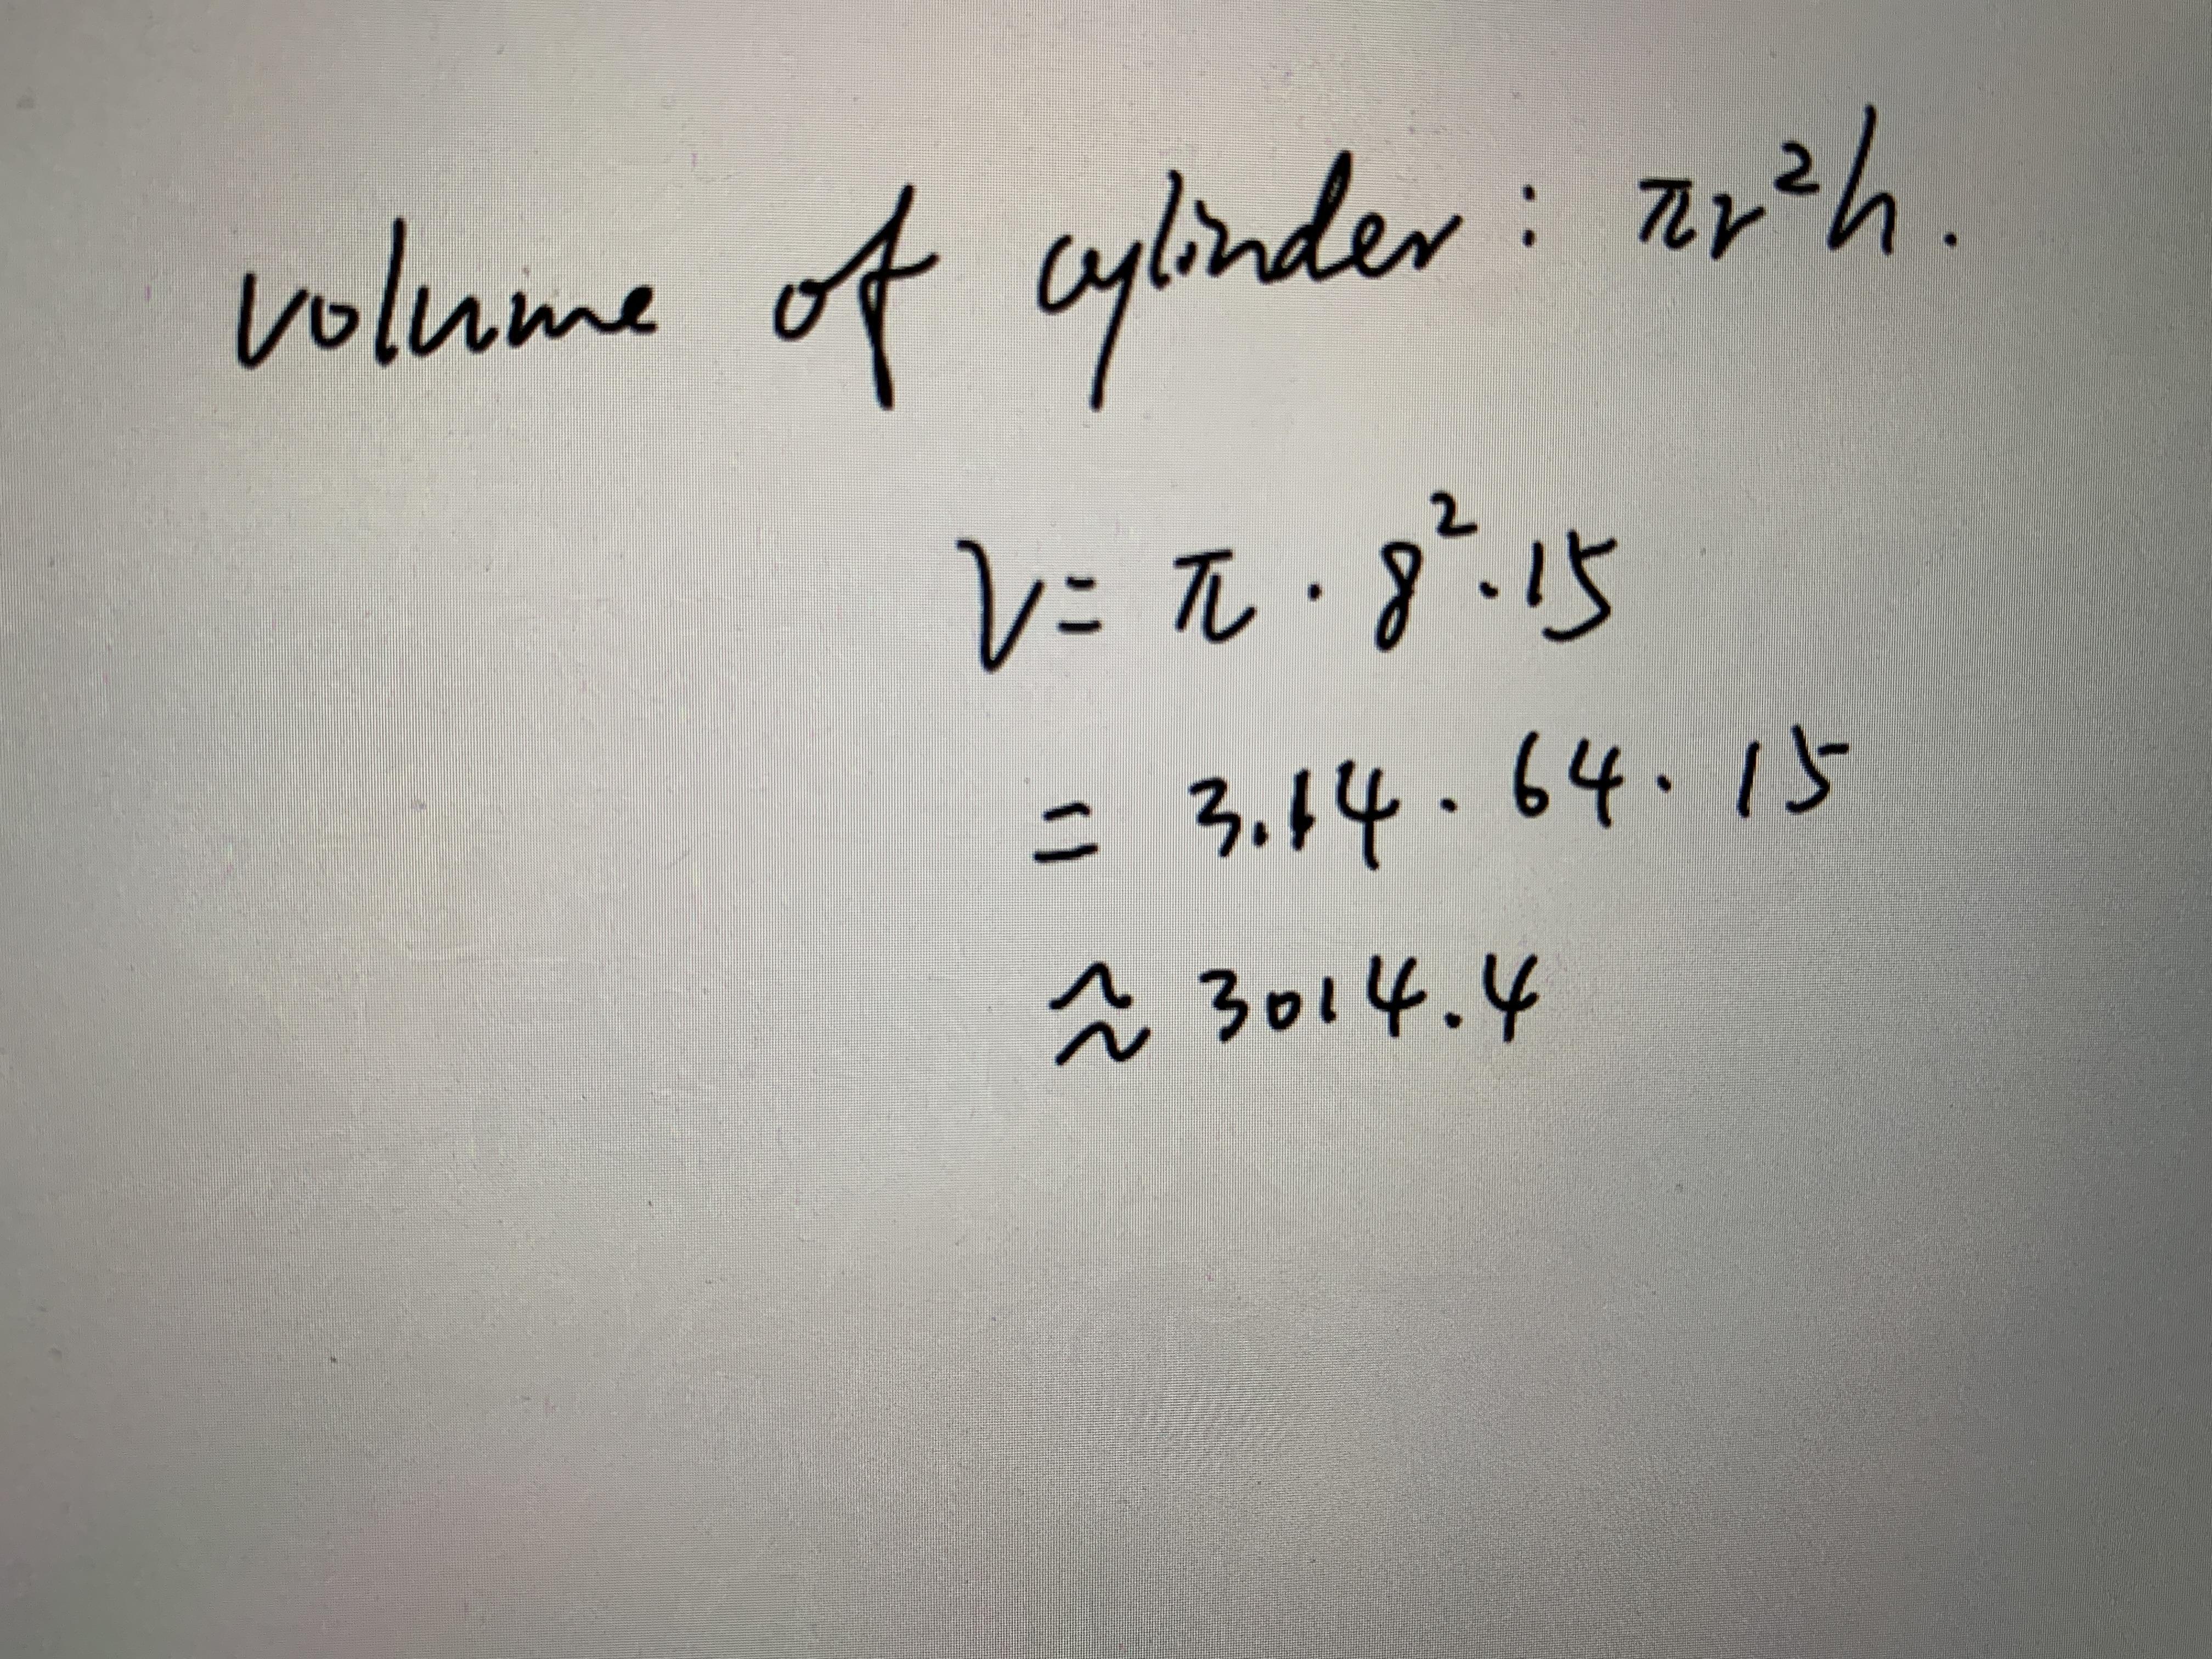 volume of cylinder : πr²h.
V = π · 8² · 15
= 3.14 · 64 · 15
≈ 3014.4